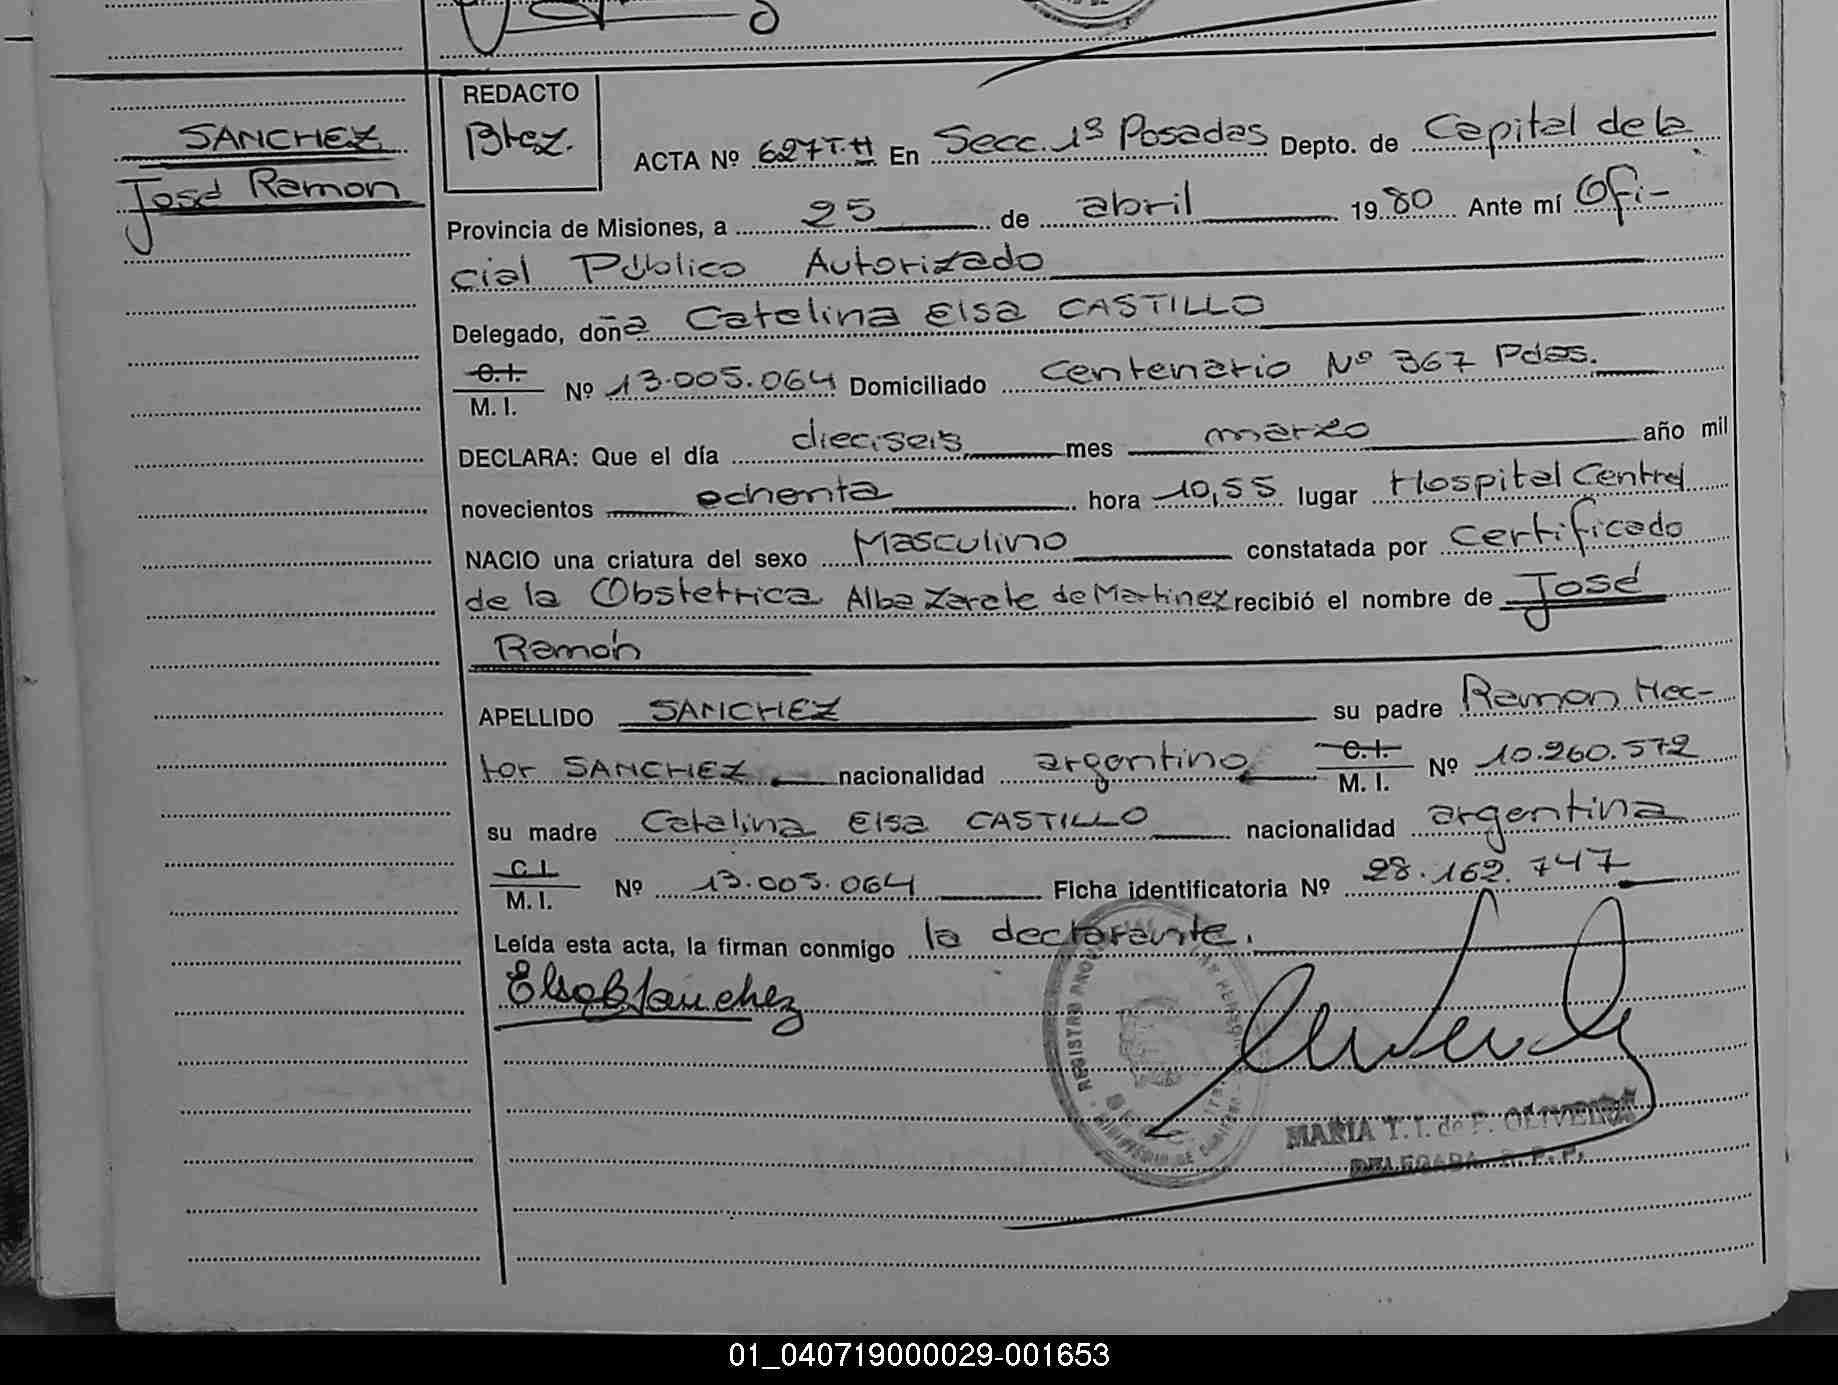 SANCHEZ
José Ramon
REDACTO
Btez.
ACTA Nº 627 T.H En Secc. 1ª Posadas Depto. de Capital de la
Provincia de Misiones, a 25 de abril 1980 Ante mí Ofi-
cial Público Autorizado
Delegado, doña Catalina Elsa CASTILLO
C.I.
M. I. Nº 13.005.064 Domiciliado Centenario Nº 367 Pdas.
DECLARA: Que el día dieciseis mes marzo año mil
novecientos ochenta hora 10,55 lugar Hospital Central
NACIO una criatura del sexo Masculino constatada por Certificado
de la Obstetrica Alba Zarate de Martinez recibió el nombre de José
Ramón
APELLIDO SANCHEZ su padre Ramon Hec-
tor SANCHEZ nacionalidad argentino C.I.
M. I. Nº 10.260.572
su madre Catalina Elsa CASTILLO nacionalidad argentina
C.I.
M. I. Nº 13.005.064 Ficha identificatoria Nº 28.162.747
Leída esta acta, la firman conmigo la declarante.
MARIA T. I. de F. OLIVEIRA
DELEGADA R. P. P.
01_040719000029-001653